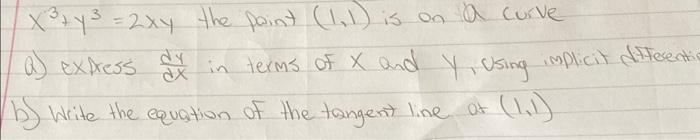 x³+y³=2xy the point (1,1) is on a curve
a) express dy/dx in terms of x and y, using implicit differentia
b) Write the equation of the tangent line at (1,1)